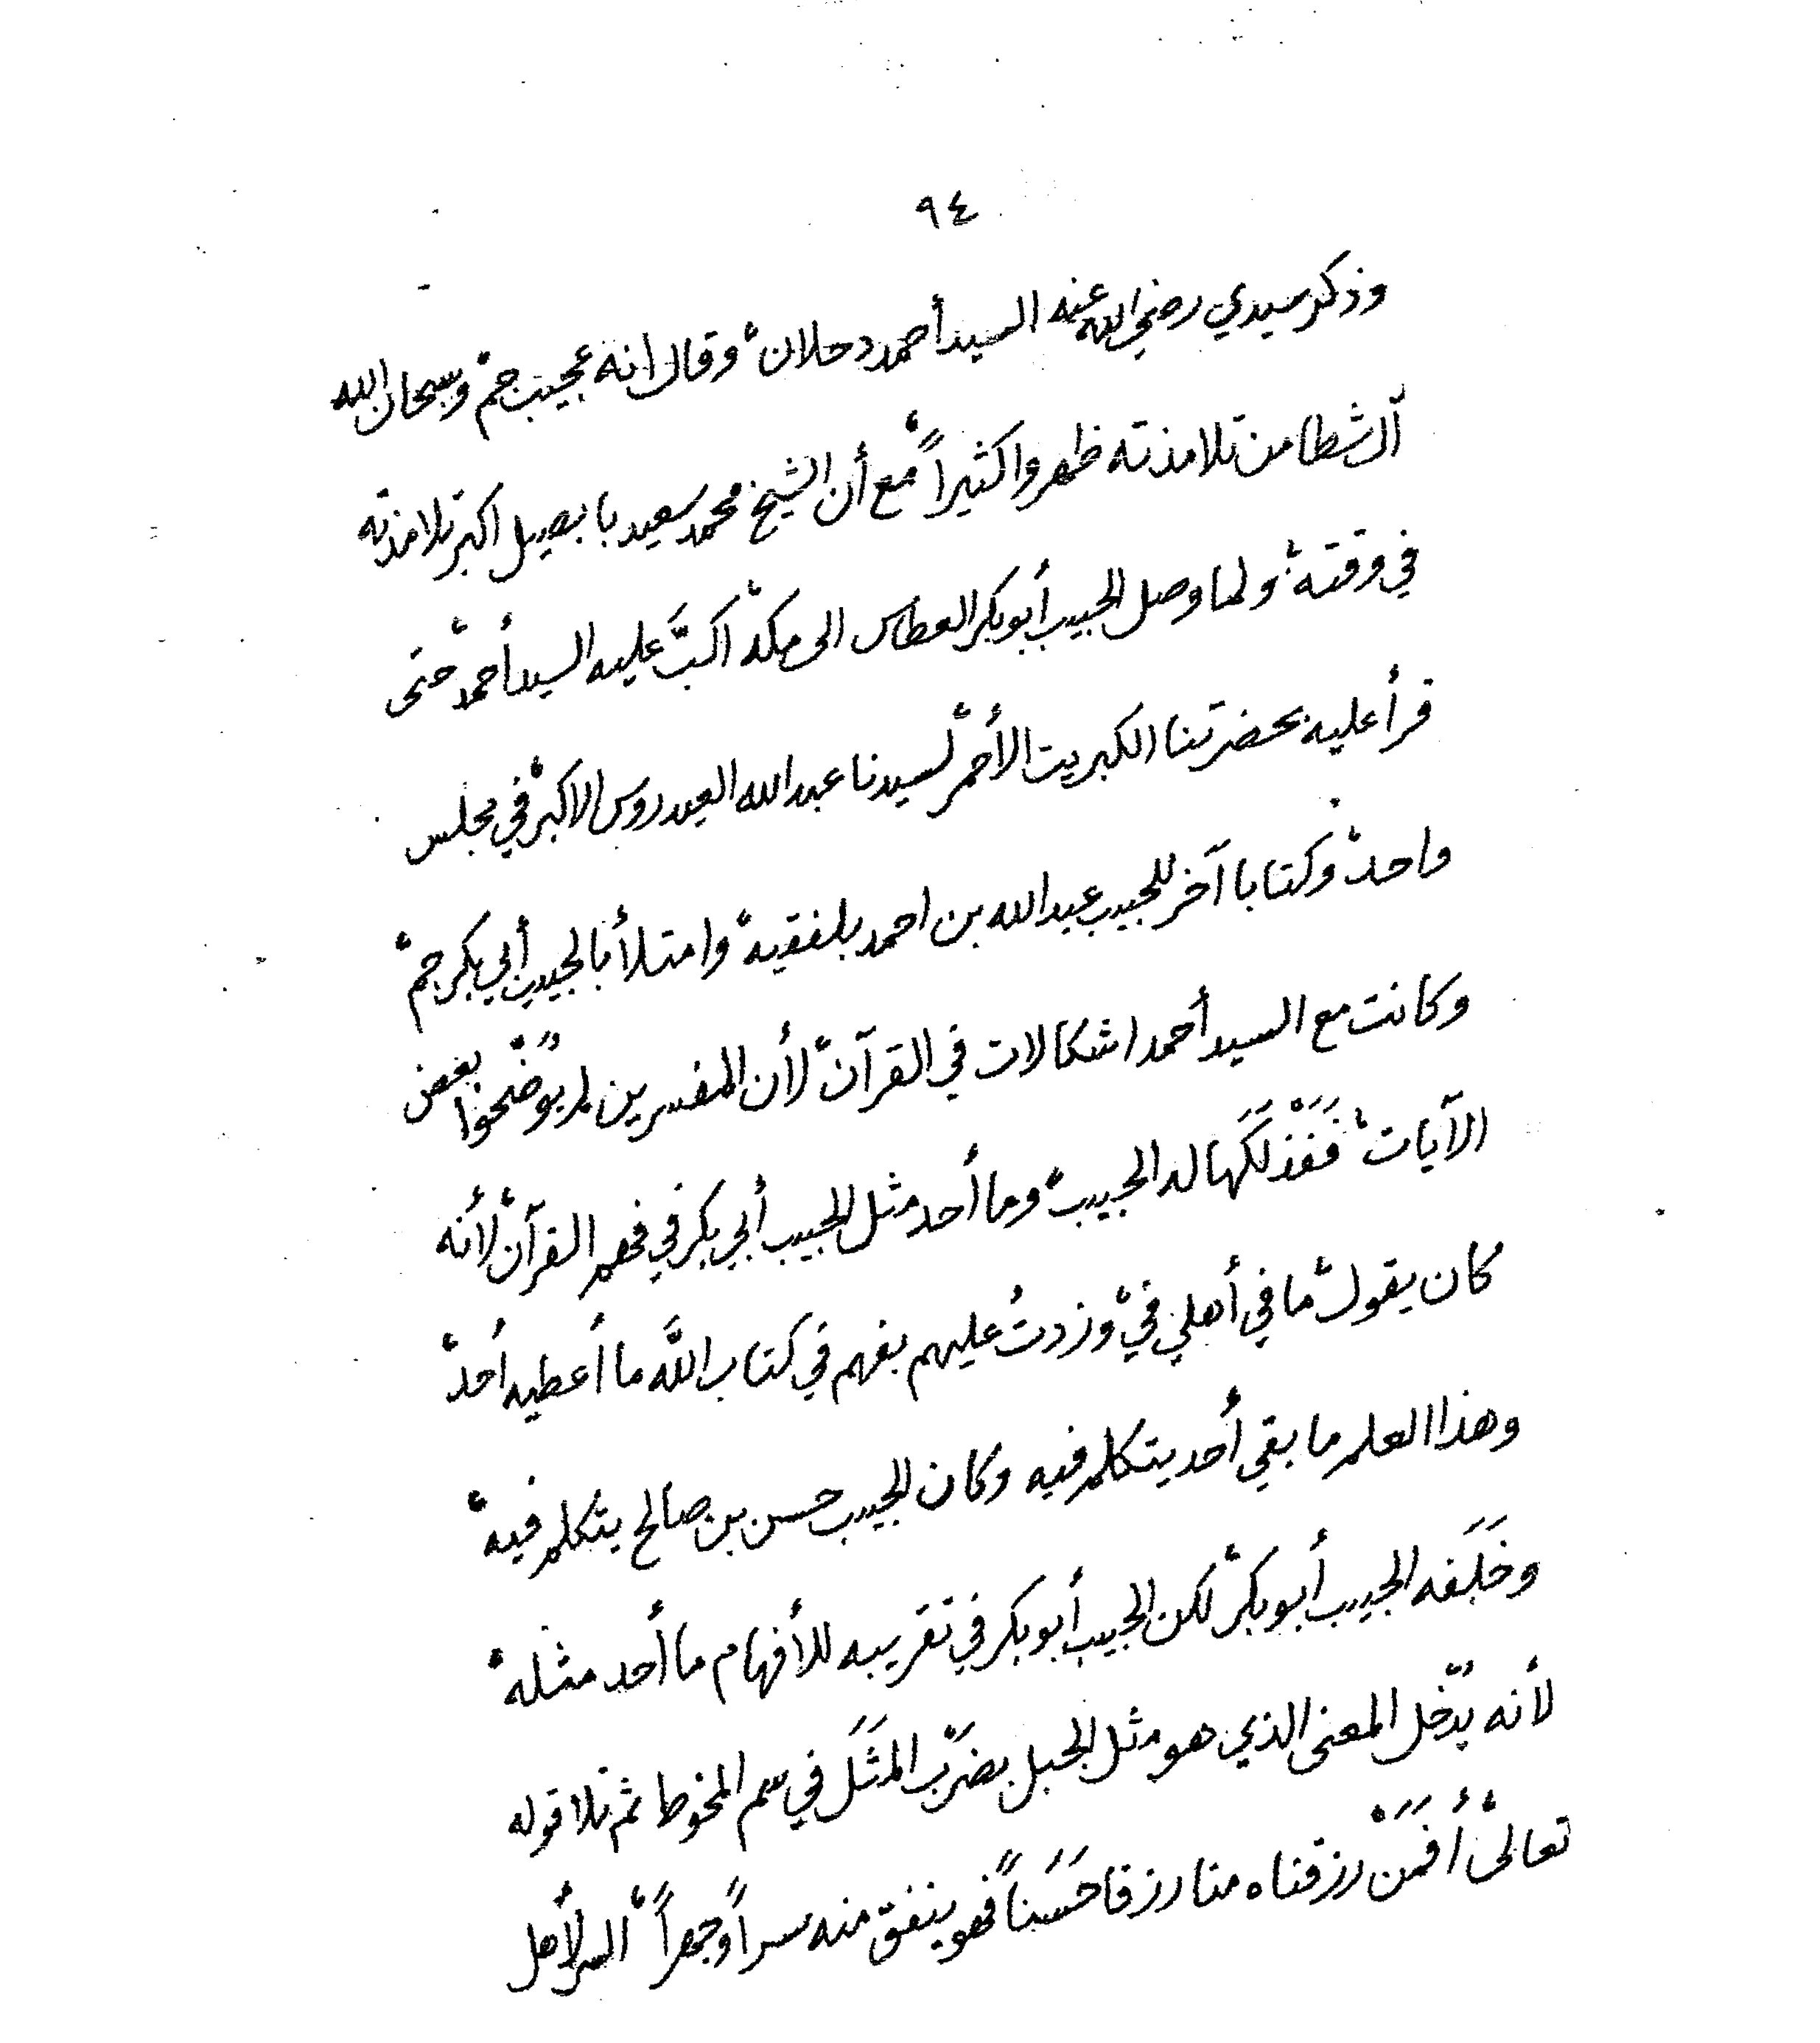 ٩٤
وذكر سيدي رضي الله عنه السيد أحمد دحلان، وقال انه عجيب جم، وسبحان الله
آل شطا من تلامذته ظهروا كثيراً، مع أن الشيخ محمد سعيد بابصيل اكبر تلامذته
في وقته، ولما وصل الحبيب أبوبكر العطاس الى مكة، اكبَّ عليه السيد أحمد، حتى
قرأ عليه بحضرتنا الكبريت الأحمر، لسيدنا عبدالله العيدروس الاكبر، في مجلس
واحد، وكتابا آخر للحبيب عبدالله بن احمد بلفقيه، وامتلأ بالحبيب أبي بكر جم،
وكانت مع السيد أحمد اشكالات في القرآن، لأن المفسرين لم يوضّحوا بعض
الآيات، فَفَذْلَكَها له الحبيب، وما أحد مثل الحبيب أبي بكر في فهم القرآن، لأنه
كان يقول، ما في أهلي فيْ، وزدتُ عليهم بفهم في كتاب اللَّه ما أعطيه أحد،
وهذا العلم ما بقي أحد يتكلم فيه وكان الحبيب حسن بن صالح يتكلم فيه،
وخَلَفَه الحبيب أبوبكر، لكن الحبيب أبوبكر في تقريبه للأفهام ما أحد مثله،
لأنه يُدْخل المعنى الذي هو مثل الجبل بضَرْب المَثَل في سم المخوطا ثم تلا قوله
تعالى، أَفَمَنْ رزقناه منا رزقا حَسَناً فهو ينفق منه سراً وجهراً، السر لأهل